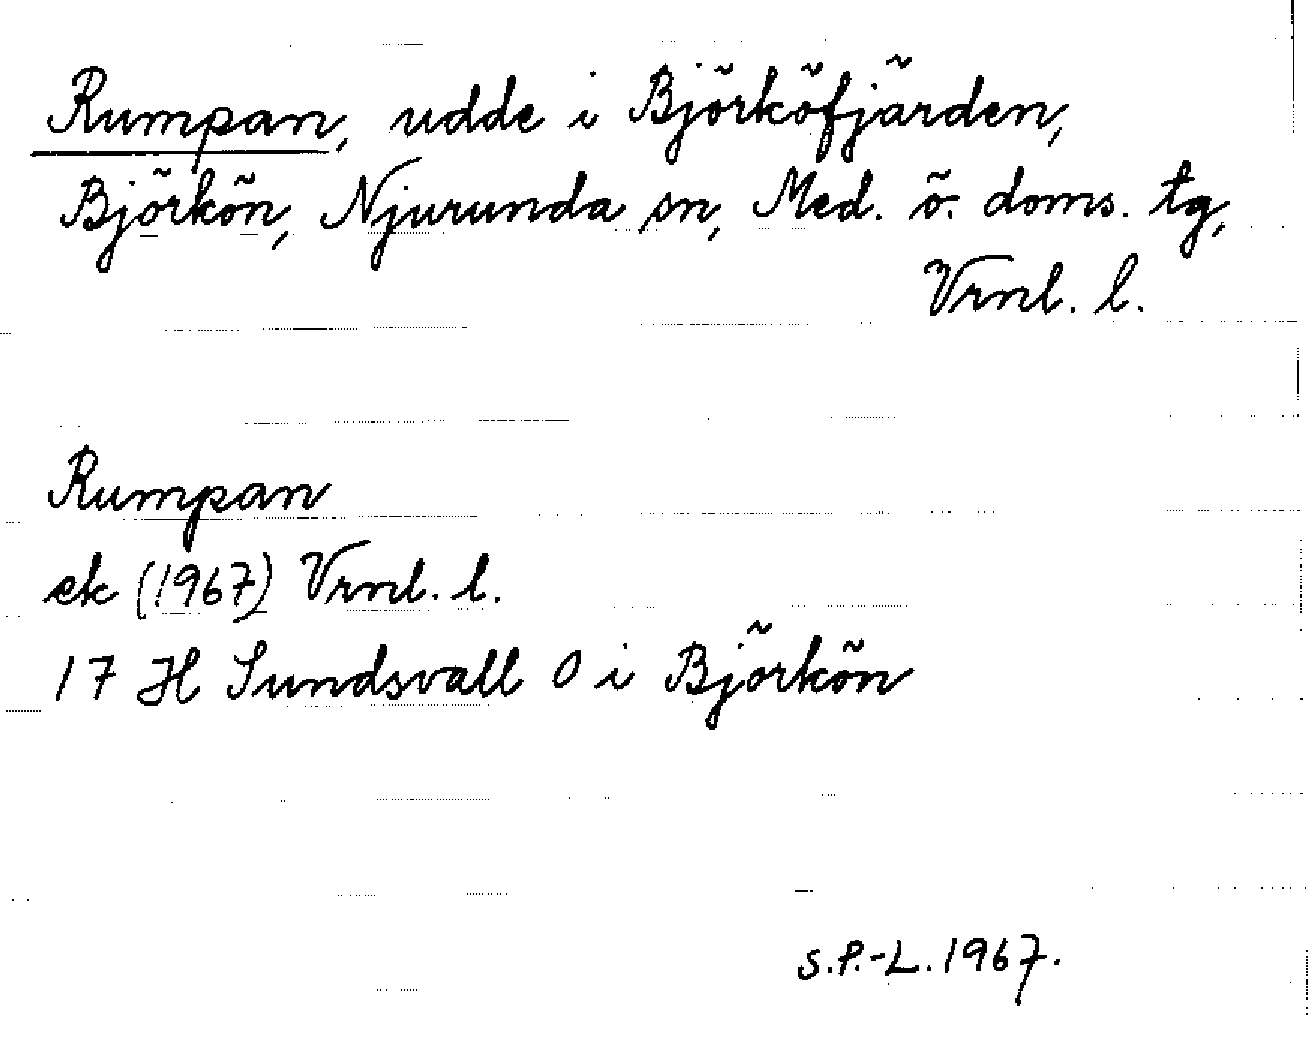 Rumpan, udde i Björköfjärden,
Björkön, Njurunda sn, Med. ö. doms. tg,
Vrnl. l.
Rumpan
ek (1967) Vrnl. l.
17 H Sundsvall O i Björkön
S.P.-L. 1967.